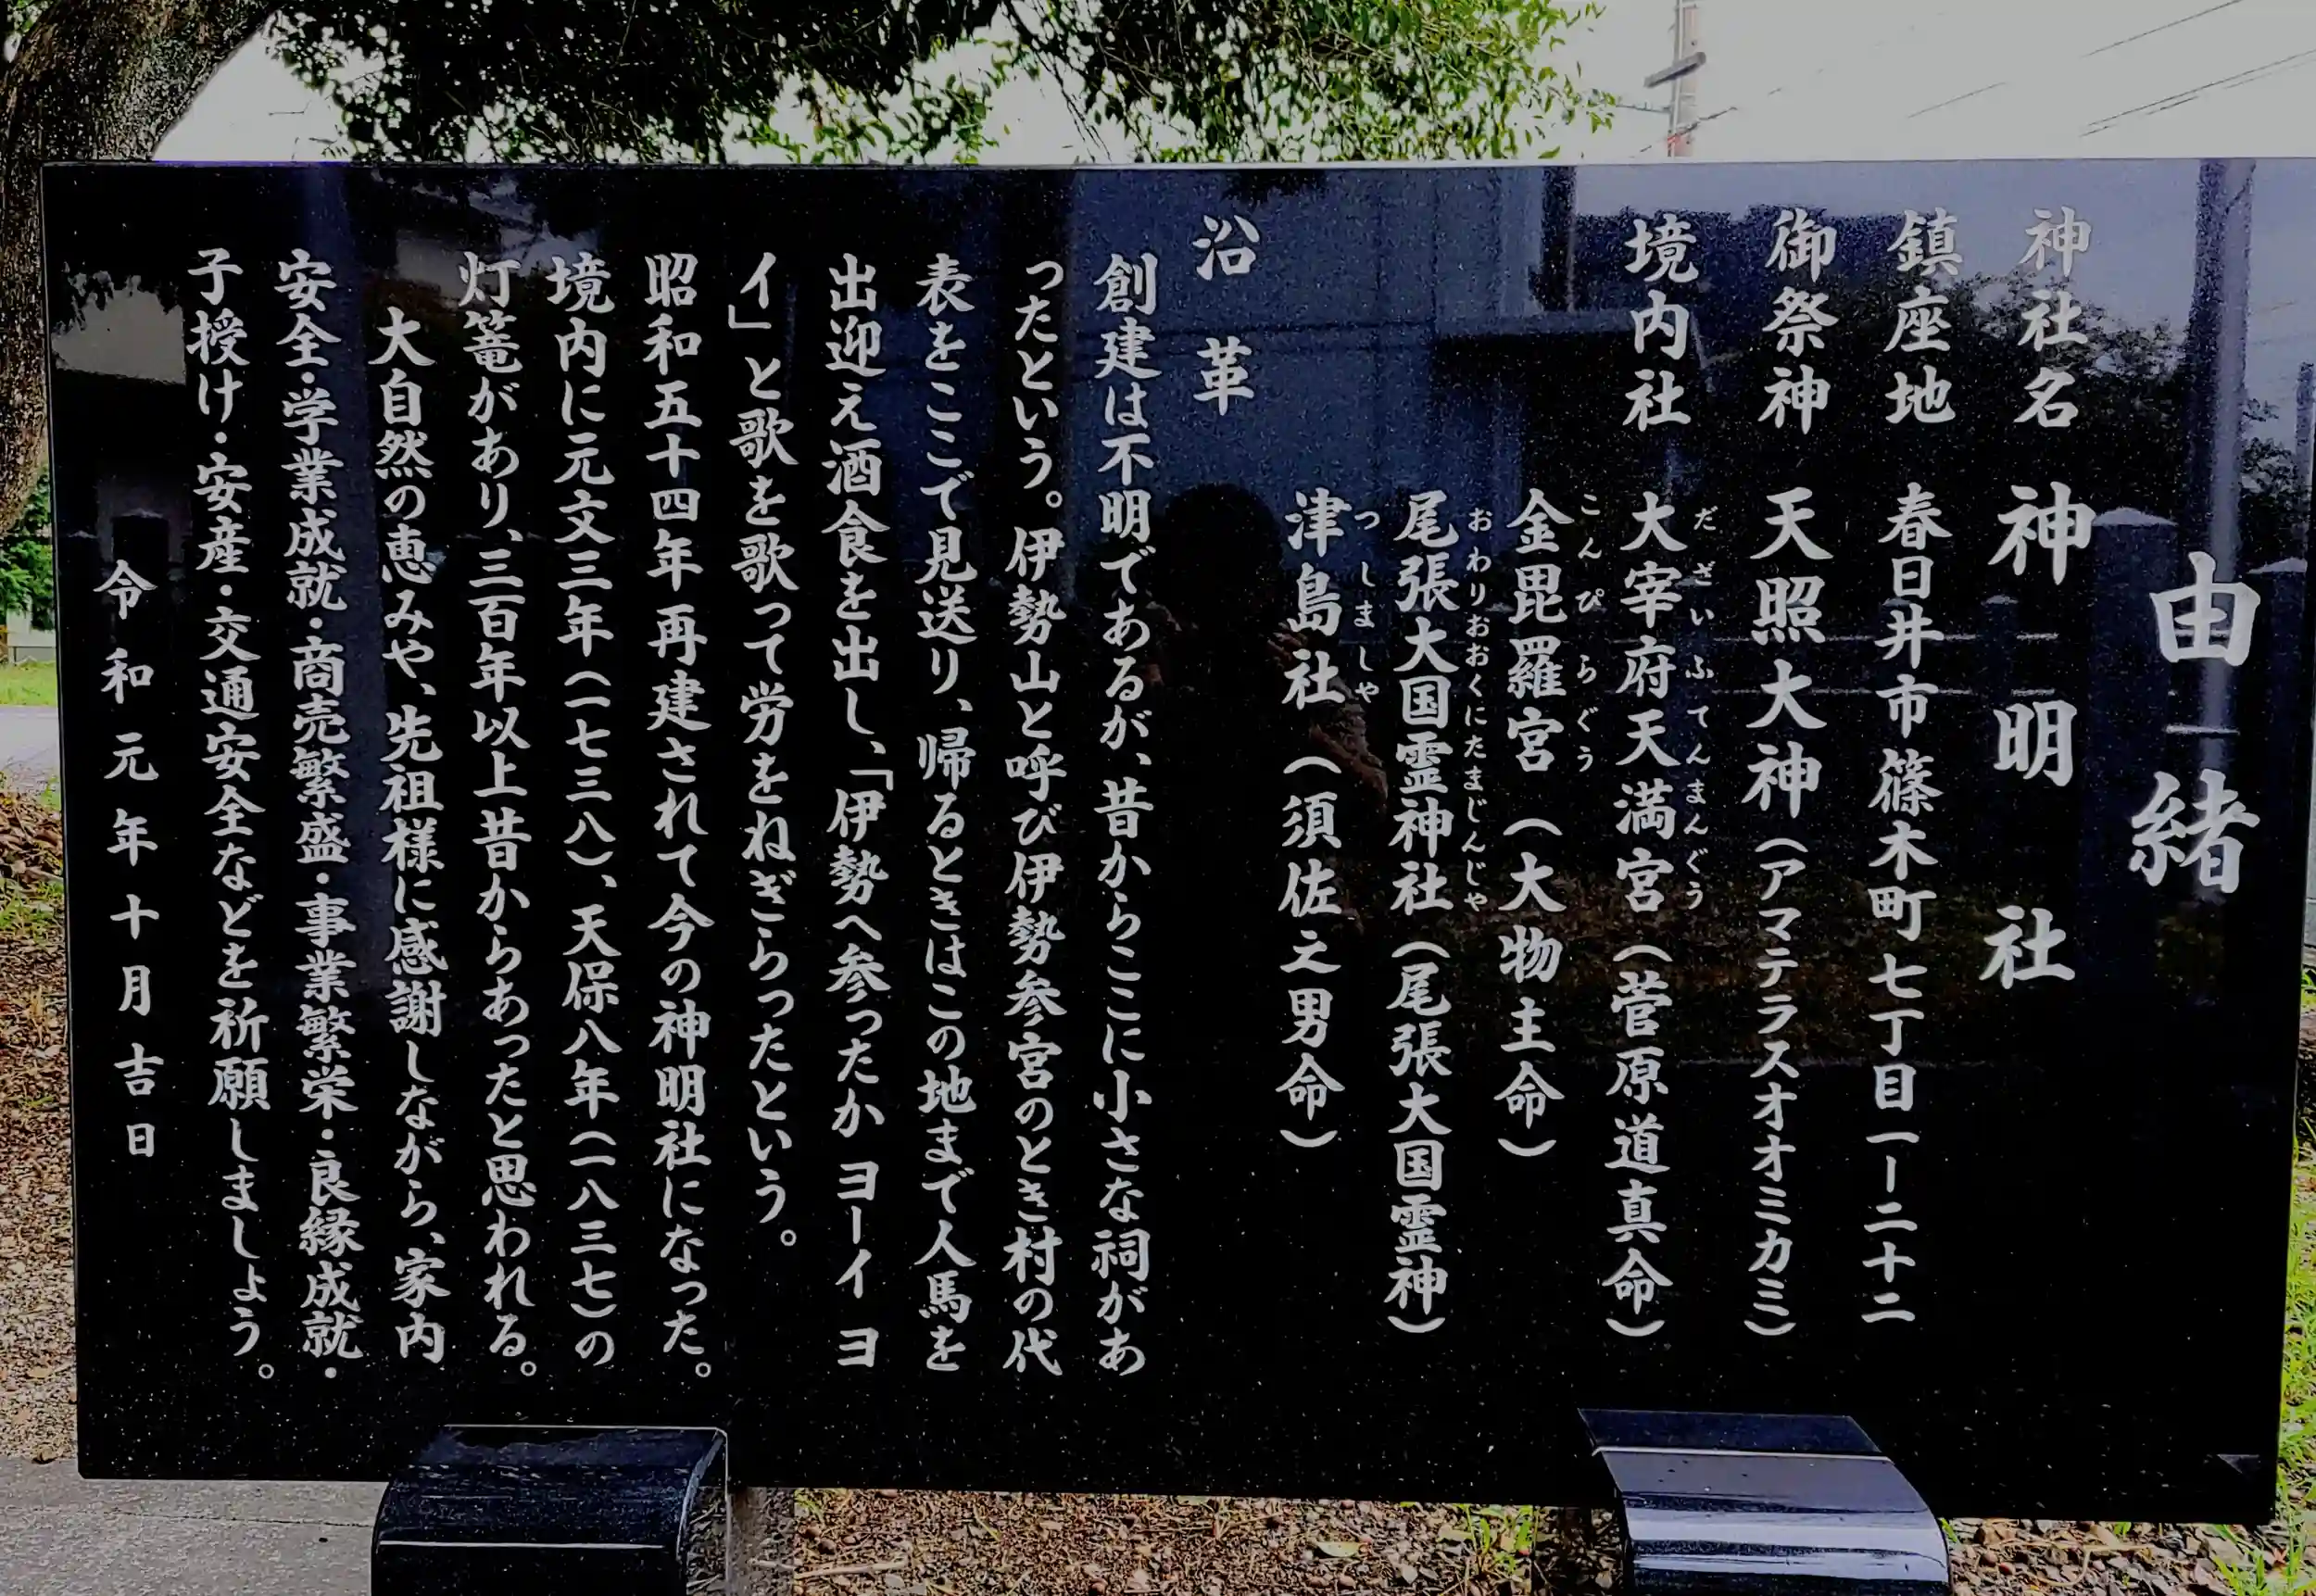 由緒
神社名 神明社
鎮座地 春日井市篠木町七丁目一ー二十二
御祭神 天照大神(アマテラスオオミカミ)
境内社 大宰府天満宮(菅原道真命)
だざいふてんまんぐう
金毘羅宮(大物主命)
こんぴらぐう
尾張大国霊神社(尾張大国霊神)
おわりおおくにたまじんじゃ
津島社(須佐之男命)
つしましゃ
沿革
創建は不明であるが、昔からここに小さな祠があ
ったという。伊勢山と呼び伊勢参宮のとき村の代
表をここで見送り、帰るときはこの地まで人馬を
出迎え酒食を出し、「伊勢へ参ったか ヨーイ ヨ
イ」と歌を歌って労をねぎらったという。
昭和五十四年再建されて今の神明社になった。
境内に元文三年(一七三八)、天保八年(一八三七)の
灯篭があり、三百年以上昔からあったと思われる。
大自然の恵みや、先祖様に感謝しながら、家内
安全・学業成就・商売繁盛・事業繁栄・良縁成就・
子授け・安産・交通安全などを祈願しましょう。
令和元年十月吉日